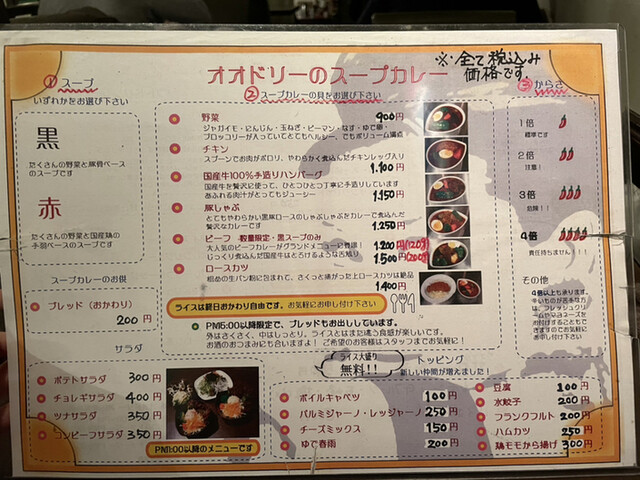 ※全て税込み
価格です。
オオドリーのスープカレー
①スープ
いずれかをお選び下さい
黒
たくさんの野菜と豚骨ベース
のスープです
赤
たくさんの野菜と国産鶏の
手羽ベースのスープです
スープカレーのお供
ブレッド(おかわり)
200円
②スープカレーの具をお選び下さい
野菜 900円
ジャガイモ・にんじん・玉ねぎ・ピーマン・なす・ゆで卵・
ブロッコリーが入っていてとてもヘルシー、でもボリューム満点
チキン
スプーンでお肉がポロリ、やわらかく煮込んだチキンレッグ入り
1.100円
国産牛100%手造りハンバーグ
国産牛を贅沢に使って、ひとつひとつ丁寧に手造りしています
あふれる肉汁がとってもジューシー
1.150円
豚しゃぶ
とてもやわらかい黒豚ロースのしゃぶしゃぶをカレーで煮込んだ
贅沢なカレー
1.250円
ビーフ 数量限定・黒スープのみ
大人気のビーフカレーがグランドメニューに登場!
じっくり煮込んだ国産牛はとろけるような舌触り
1.200円(120g)
1.500円(200g)
ロースカツ
粗めの生パン粉に包まれて、さくっと揚がったロースカツは絶品
1.400円
ライスは終日おかわり自由です。お気軽にお申し付け下さい
PM6:00以降限定で、ブレッドもお出ししています。
外はさくさく、中はしっとり。ライスとはまた違う食感が楽しいです。
お酒のおつまみにも合いますよ! ご希望のお客様はスタッフまでお気軽に!
③からさ
1倍
標準です
2倍
注意!
3倍
危険!!
4倍
責任持ちません!!
その他
4倍以上も承ります。
辛いものが苦手な方
は、フレッシュクリ
ームやマヨネーズを
お付けすることもで
きますのでお気軽に
お申し付け下さい
サラダ
ポテトサラダ 300円
チョレギサラダ 400円
ツナサラダ 350円
コンビーフサラダ 350円
PM6:00以降のメニューです
ライス大盛り
無料!!
トッピング
新しい仲間が増えました!
ボイルキャベツ 100円
パルミジャーノ・レッジャーノ 250円
チーズミックス 150円
ゆで春雨 200円
豆腐 100円
水餃子 200円
フランクフルト 200円
ハムカツ 250円
鶏モモから揚げ 300円